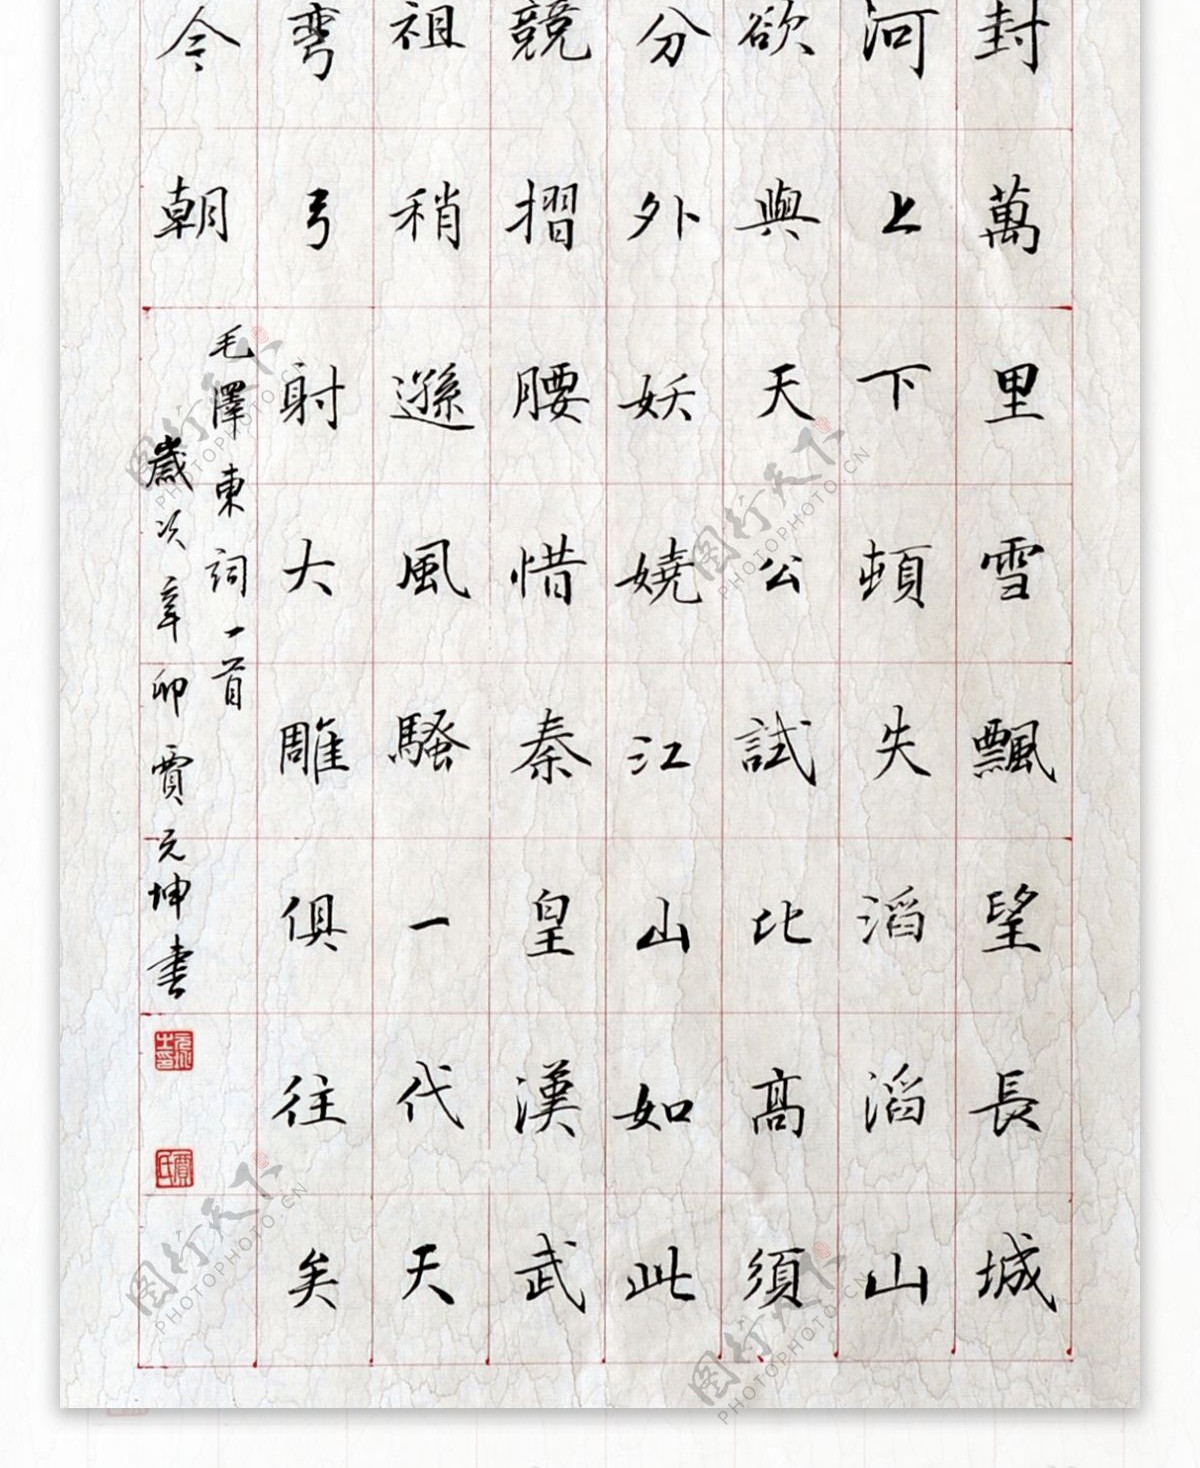 封萬里雪飄望長城
河上下頓失滔滔山
欲與天公試比高須
分外妖嬈江山如此
競摺腰惜秦皇漢武
祖稍遜風騷一代天
彎弓射大雕俱往矣
今朝
毛澤東詞一首
歲次辛卯賈元坤書
图行天下
PHOTOPHOTO.CN
图行天下
PHOTOPHOTO.CN
图行天下
PHOTOPHOTO.CN
图行天下
PHOTOPHOTO.CN